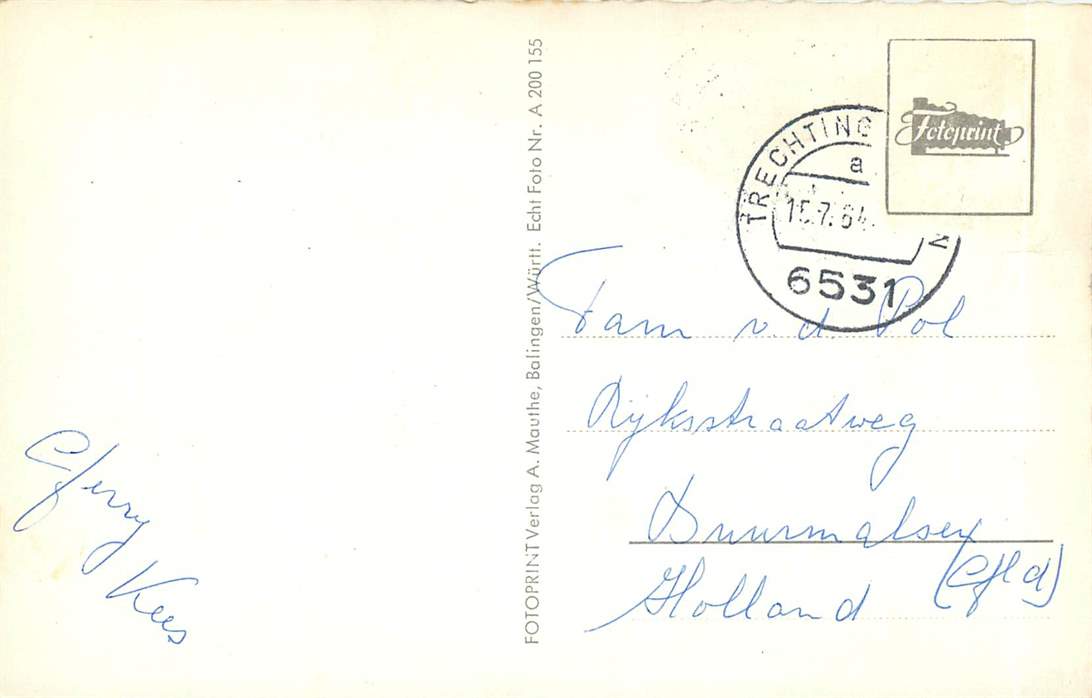 Gerry
Kees
FOTOPRINT Verlag A. Mauthe, Balingen/Württ. Echt Foto Nr. A 200 155
Fotoprint
TRECHTING N
a
15.7.64
6531
Fam v. d. Pol
Rijksstraatweg
Buurmalsen
(Gld)
Holland